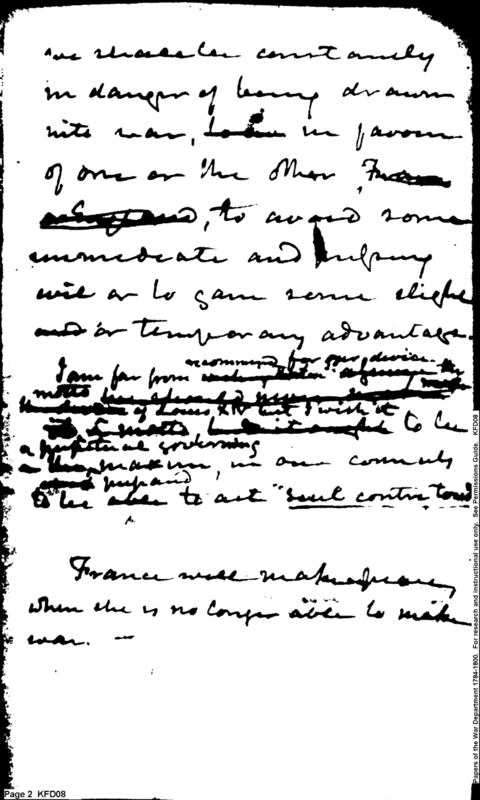 we shall be constantly
in danger of being drawn
into war, in favour
of one or the other, France
or England, to avoid some
immediate and pressing
evil or to gain some slight
and or temporary advantage.
recommend for our device the
I am far from
motto
of Louis XIV but I wish it
to be
a perpetual governing
maxim, in our councils
prepared
to be able to act "seul contre tous"
France will make peace,
when she is no longer able to make
war. —
Page 2 KFD08
Papers of the War Department 1784-1800. For research and instructional use only. See Permissions Guide. KFD08